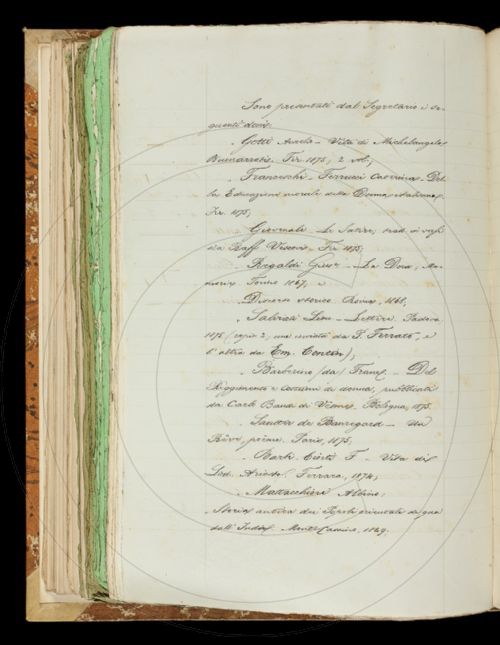 Sono presentati dal Segretario i se-
guenti doni:
Gotti Aurelio – Vita di Michelangelo
Buonarroti. Fir. 1875, 2 vol.;
Franceschi-Ferrucci Caterina. Del-
la Educazione morale della Donna italiana.
Fir. 1875;
Giovenale – Le Satire, trad. in versi
da Raff. Vescovi. Fir. 1875;
Regaldi Gius. – La Dora, Me-
morie. Torino 1867, e
Discorso storico. Roma, 1865,
Salviati Lion. – Lettere. Padova
1875 (copie 2, una inviata da P. Ferrato, e
l'altra da Em. Contin);
Barberino (da) Franc. – Del
Reggimento e costumi di donna, pubblicati
da Carlo Baudi di Vesme. Bologna, 1875.
de Beauregard – Un
Rêve, poème. Paris, 1875;
F. – Vita di
Lod. Ariosto. Ferrara, 1874;
Storia antica dei Popoli orientali
dall' Indo. Monte Cassino, 1849.